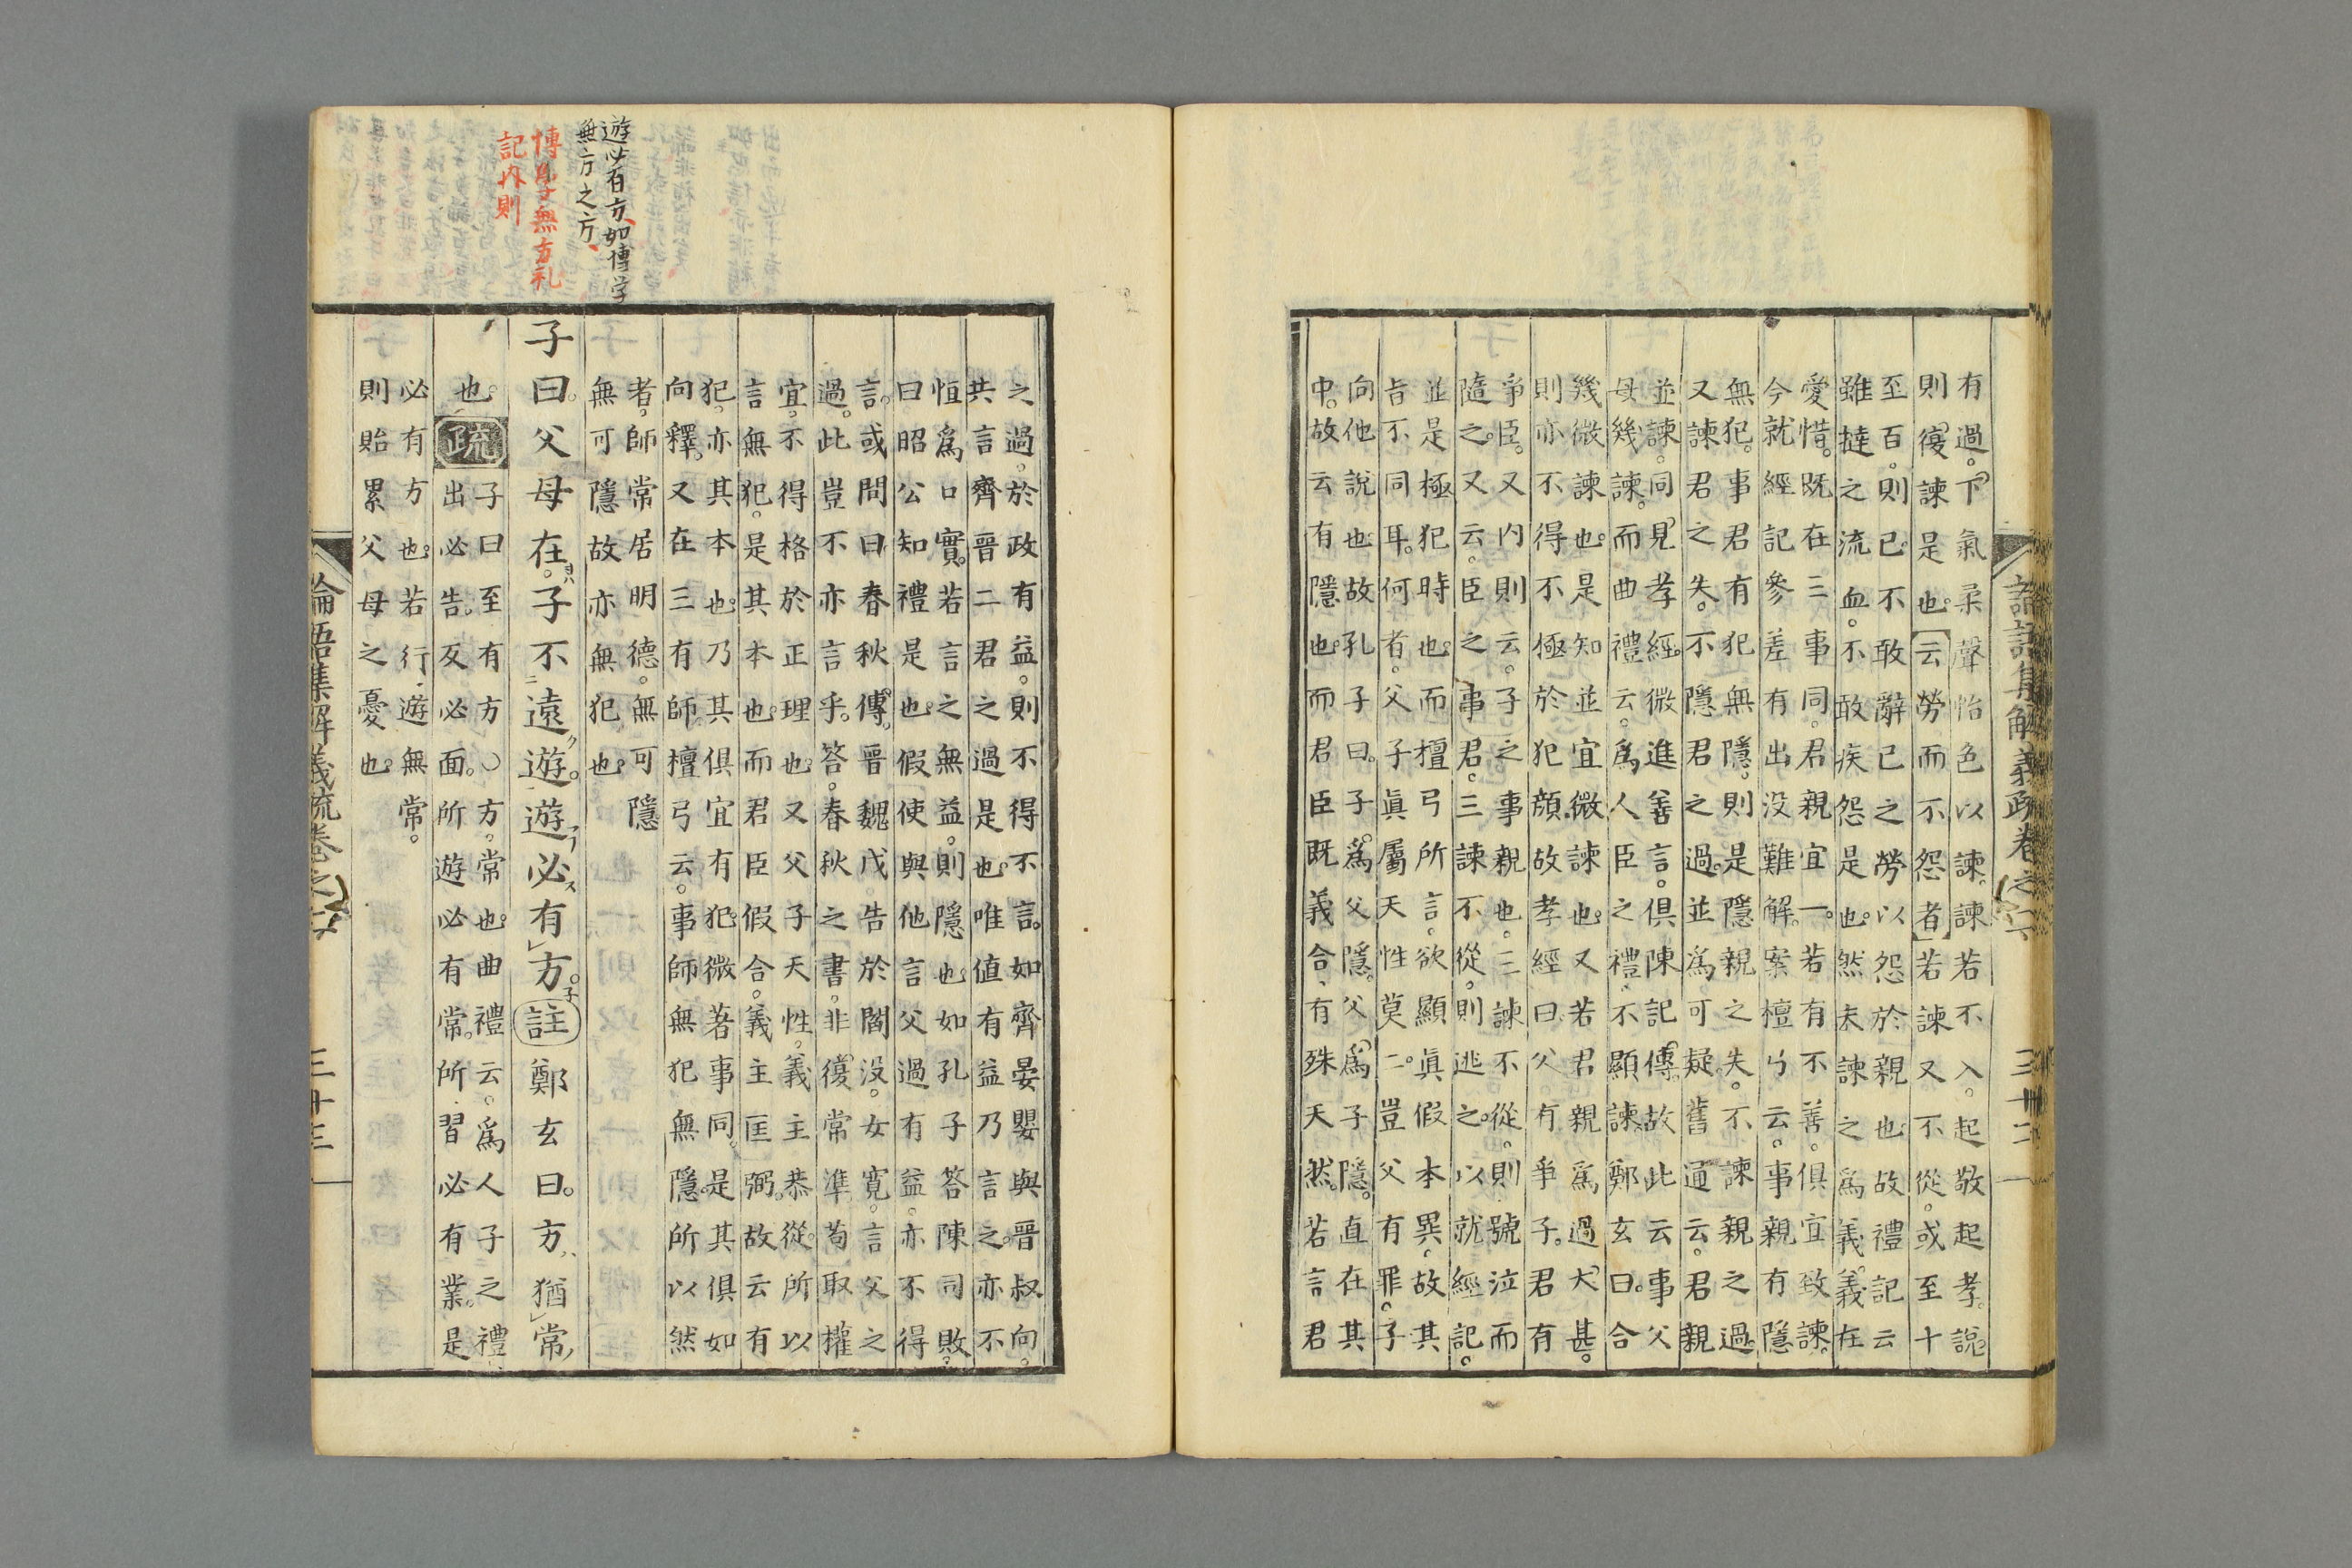 論語集解義疏卷之二 三十二
有過。下氣柔聲怡色以諫。諫若不入。起敬起孝。說
則復諫是也。云勞而不怨者。若諫又不從。或至十
至百。則已不敢辭己之勞以怨於親也。故禮記云
雖撻之流血。不敢疾怨是也。然夫諫之爲義。義在
愛惜。既在三事同。君親宜一。若有不善。俱宜致諫。
今就經記參差有出没難解。案檀弓云。事親有隱
無犯。事君有犯無隱。則是隱親之失。不諫親之過。
又諫君之失。不隱君之過。並爲可疑。舊通云。君親
並諫。同見孝經。微進善言。俱陳記傳。故此云事父
母幾諫。而曲禮云。爲人臣之禮。不顯諫。鄭玄曰。合
幾微諫也。是知並宜微諫也。又若君親爲過大甚。
則亦不得不極於犯顏。故孝經曰。父有爭子。君有
爭臣。又內則云。子之事親也。三諫不從。則號泣而
隨之。又云。臣之事君。三諫不從。則逃之。以就經記。
並是極犯時也。而檀弓所言。欲顯真假本異。故其
旨不同耳。何者。父子真屬天性莫二。豈父有罪。子
向他說也。故孔子曰。子爲父隱。父爲子隱。直在其
中。故云有隱也。而君臣既義合。有殊天然。若言君
之過。於政有益。則不得不言。如齊晏嬰與晉叔向。
共言齊晉二君之過是也。唯值有益乃言之。亦不
恒爲口實。若言之無益。則隱也。如孔子答陳司敗。
曰昭公知禮是也。假使與他言父過有益。亦不得
言。或問曰。春秋傳。晉魏戊。告於閻没。女寛。言父之
過。此豈不亦言乎。答。春秋之書。非復常準。苟取權
宜。不得格於正理也。又父子天性。義主恭從。所以
言無犯。是其本也。而君臣假合。義主匡弼。故云有
犯。亦其本也。乃其俱宜有犯。微著事同。是其俱如
向釋。又在三有師。檀弓云。事師無犯無隱。所以然
者。師常居明德。無可隱
無可隱故亦無犯也。
遊必有方、如博学
無方之方、
博學無方礼
記内則
子曰。父母在。子不遠遊。遊必有方。註鄭玄曰。方、猶常
也。疏子曰至有方○方。常也。曲禮云。爲人子之禮
出必告。反必面。所遊必有常。所習必有業。是
必有方也。若行遊無常。
則貽累父母之憂也。
論語集解義疏卷之二 三十三